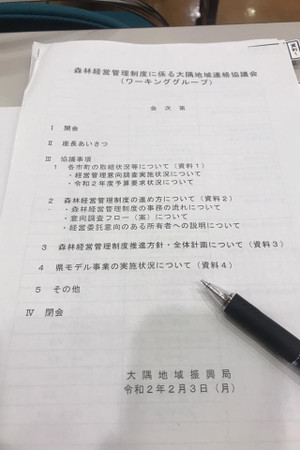 資料1
森林経営管理制度に係る大隅地域連絡協議会
（ワーキンググループ）
会　次　第
Ⅰ　開会
Ⅱ　座長あいさつ
Ⅲ　協議事項
1　各市町の取組状況等について（資料１）
・経営管理意向調査実施状況について
・令和２年度予算要求状況について
2　森林経営管理制度の進め方について（資料２）
・森林経営管理制度の事務の流れについて
・意向調査フロー（案）について
・経営委託意向のある所有者への説明について
3　森林経営管理制度推進方針・全体計画について（資料３）
4　県モデル事業の実施状況について（資料４）
5　その他
Ⅳ　閉会
大隅地域振興局
令和２年２月３日（月）